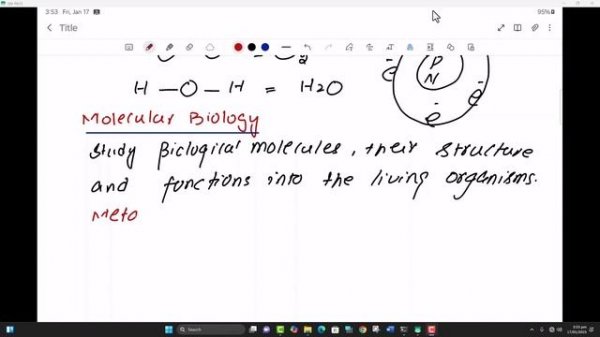 3:53 Fri, Jan 17
95%
Title
H — O — H = H2O
P
N
e
e
Molecular Biology
Study Biological molecules, their structure
and functions into the living organisms.
Meto
Search
17/01/2025